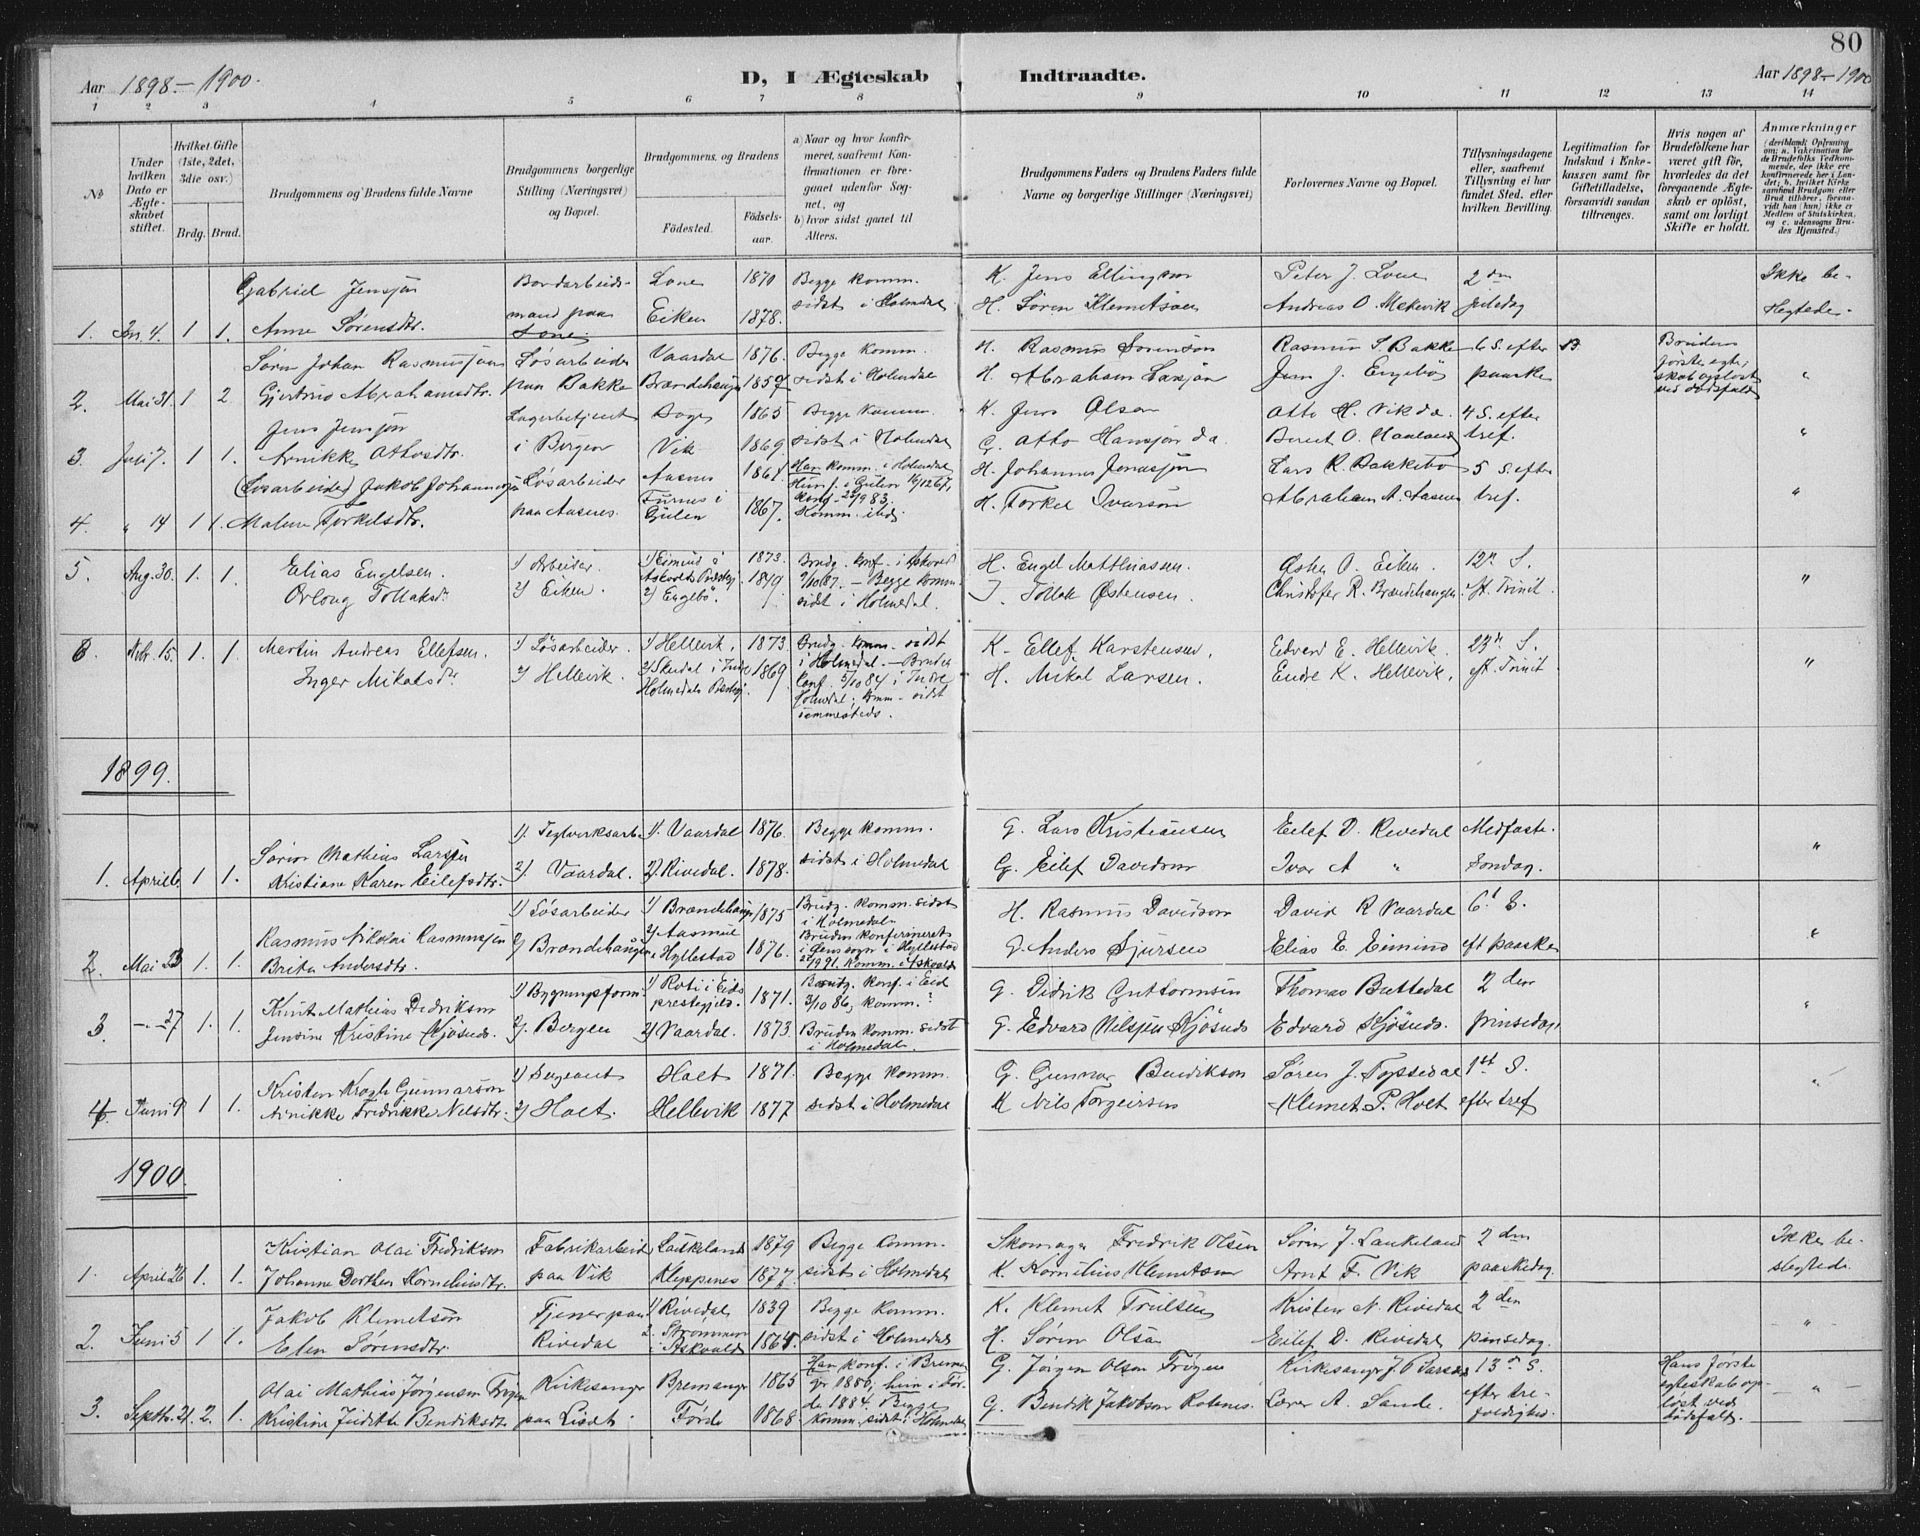 80
Aar 1898 - 1900.
D, I Ægteskab Indtraadte.
Aar 1898 - 1900
1 2 3 4 5 6 7 8 9 10 11 12 13 14
№
Under hvilken Dato er Ægteskabet stiftet.
Hvilket Gifte (1ste, 2det, 3die osv.)
Brdg. Brud.
Brudgommens og Brudens fulde Navne
Brudgommens borgerlige Stilling (Næringsvei) og Bopæl.
Brudgommens og Brudens
Fødested.
Fødselsaar.
a) Naar og hvor konfirmeret, saafremt Konfirmationen er foregaaet udenfor Sognet, og
b) hvor sidst gaaet til Alters.
Brudgommens Faders og Brudens Faders fulde Navne og borgerlige Stillinger (Næringsvei)
Forlovernes Navne og Bopæl.
Tillysningsdagene eller, saafremt Tillysning ei har fundet Sted, efter hvilken Bevilling.
Legitimation for Indskud i Enkekassen samt for Giftetilladelse, forsaavidt saadan tiltrænges.
Hvis nogen af Brudefolkene har været gift før, hvorledes da det foregaaende Ægteskab er opløst, samt om lovligt Skifte er holdt.
Anmærkninger
Gabriel Jensøn Bordarbeids- Lone 1870 Begge komm. K. Jens Ellingsen Peter J. Lone 2den Ikke be-
1. Jan. 4. 1 1. Anne Sørensdtr. mand paa Lone Eiken 1878. sidst i Holmedal H. Søren Klemetsøn Andreas O. Mekevik juledag slegtede.
Søren Johan Rasmussøn Løsarbeider Vaardal 1876. Begge komm. H. Rasmus Sørensøn Rasmus S. Bakke 6 S. efter B. Brudens
2. Mai 31. 1 2 Gjertrud Abrahamsdtr. paa Bakke Brændehaugen 1857 sidst i Holmedal H. Abraham Larsøn Jens J. Engebø paaske første egteskab opløst ved dødsfald "
Jens Jensøn Lagerbetjent 1865 Begge komm. K. Jens Olsen Otto H. Vik da. 4 S. efter
3. Juli 7. 1 1. Annikke Ottosdtr. i Bergen Vik 1869 sidst i Holmedal G. Otto Hansøn da Berent O. tref. "
(Løsarbeider) Jakob Johannesøn Løsarbeider Aasnes 1864. Han komm. i Holmedal H. Johannes Jonassøn Lars R. Bakkebø 5 S. efter
4. " 14 1 1. Malene Torkelsdtr. paa Aasnes. Furnes i Gulen 1867. H. Torkel Ivarsøn Abraham A. Aasnes tref. "
5. Aug. 30. 1. 1. Elias Engelsen. 1) Arbeider. 1) Eimind i Askvolds Præstegj. 1873. Brudg. konf. i Askvold H. Engel Matthiassen. Østen O. Eiken. 12te S.
Orlong Tollaksdr 2) Eiken. 2) Engebö 1879 7/10 87. - Begge komm. sidst i Holmedal. I. Tollak Østensen. Christofer R. Brændehaugen eft. Trinit. "
6. Nvbr. 15. 1. 1. Martin Andreas Ellefsen. 1) Løsarbeider. 1) Hellevik, 1873. Brudg. komm. sidst i Holmedal - Bruden K. Ellef Karstensen, Edvard E. Hellevik. 23de S.
Inger Mikalsdr 2) Hellevik. 2) Skudal i Indre Holmedals Præstegj. 1869. conf. 5/10 84 i Indre Holmedal; komm. sidst sammesteds. H. Mikal Larsen. Endre K. Hellevik, eft. Trinit "
1899.
Søren Mathias Larsen 1). Teglverksarb. 1). Vaardal 1876. Begge komm. G. Lars Kristiansen Eilef D. Rivedal Midfaste-
1. April 6. 1 1. Kristiane Karen Eilefsdtr. 2). Vaardal. 2). Rivedal 1878. sidst i Holmedal G. Eilef Davidsen Ivar A " søndag. "
Rasmus Nikolai Rasmussøn 1) Løsarbeider 1) Brændehaug 1875 Brudg. komm. sidst i Holmedal. H. Rasmus Davidsøn David R Vaardal 6te S.
2. Mai 23 1. 1. Brita Andersdtr. 2) Brændehaugen 2) Aasmul i Hyllestad 1876. Bruden konfirmeret i Hyllestad komm. i Askvold G. Anders Sjursen Elias E. Eimind eft paaske "
Knut Mathias Dedriksøn 1) Bygningsform. 1) Roti i Eids prestegjeld. 1871. Brudg. konf. i Eid 3/10 86, komm.? G. Didrik Guttormsen Thomas Buttedal 2den
3 -"-27 1. 1. Jensine Kristine Kjøsnes. 2). Bergen 2) Vaardal. 1873. Bruden komm. sidst i Holmedal. G. Edvard Nilssøn Kjøsnes Edvard Kjøsnes. pinsedag "
Kristen Krogh Gunnarsøn 1) Sergeant Holt 1871. Begge komm. G. Gunnar Bendiksøn Søren J. Tyssedal 1st S.
4 Juni 9 1 1. Annikke Fredrikke Nilsdtr. 2) Holt. Hellevik 1877 sidst i Holmedal K Nils Torgeirsen Klemet P. Holt efter tref "
1900.
Kristian Olai Fredriksen Fabrikarbeid. Laukeland 1879 Begge komm. Skomager Fredrik Olsen Søren J. Laukeland 2den Ikke be-
1. April 26 1. 1. Johanne Dorthea Korneliusdtr. paa Vik Kleppenes 1877. sidst i Holmedal K. Kornelius Klemetsen Arnt F. Vik paaskedag. slegtede.
Jakob Klemetsøn Tjener paa 1) Rivedal 1839 Begge komm. K. Klemet Trulsen Kristen N. Rivedal 2den
2. Juni 5 1 1. Elen Sørensdtr. Rivedal 2. Strømmen i Askvold 1864. sidst i Holmedal H. Søren Olsen Eilef D. Rivedal pinsedag. - " -
Olai Mathias Jørgensen Frøyen Kirkesanger Bremanger 1865 Han konf. i Bremanger 1880, hun i Førde 1884. Begge G. Jørgen Olsen Frøyen Kirkesanger J. O. 13de S. Hans første
3. Septbr. 21. 2. 1. Kristine Judithe Bendiksdtr paa Førde 1868 komm. sidst i Holmedal G. Bendik Jakobsen Lærer A. Sande. efter trefoldighed. egteskab opløst ved dødsfald. - " -